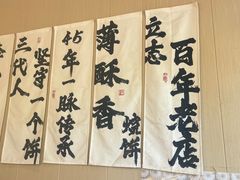 立志
百年老店
薄酥香
烧饼
45年一脉传承
三代人
坚守一个饼